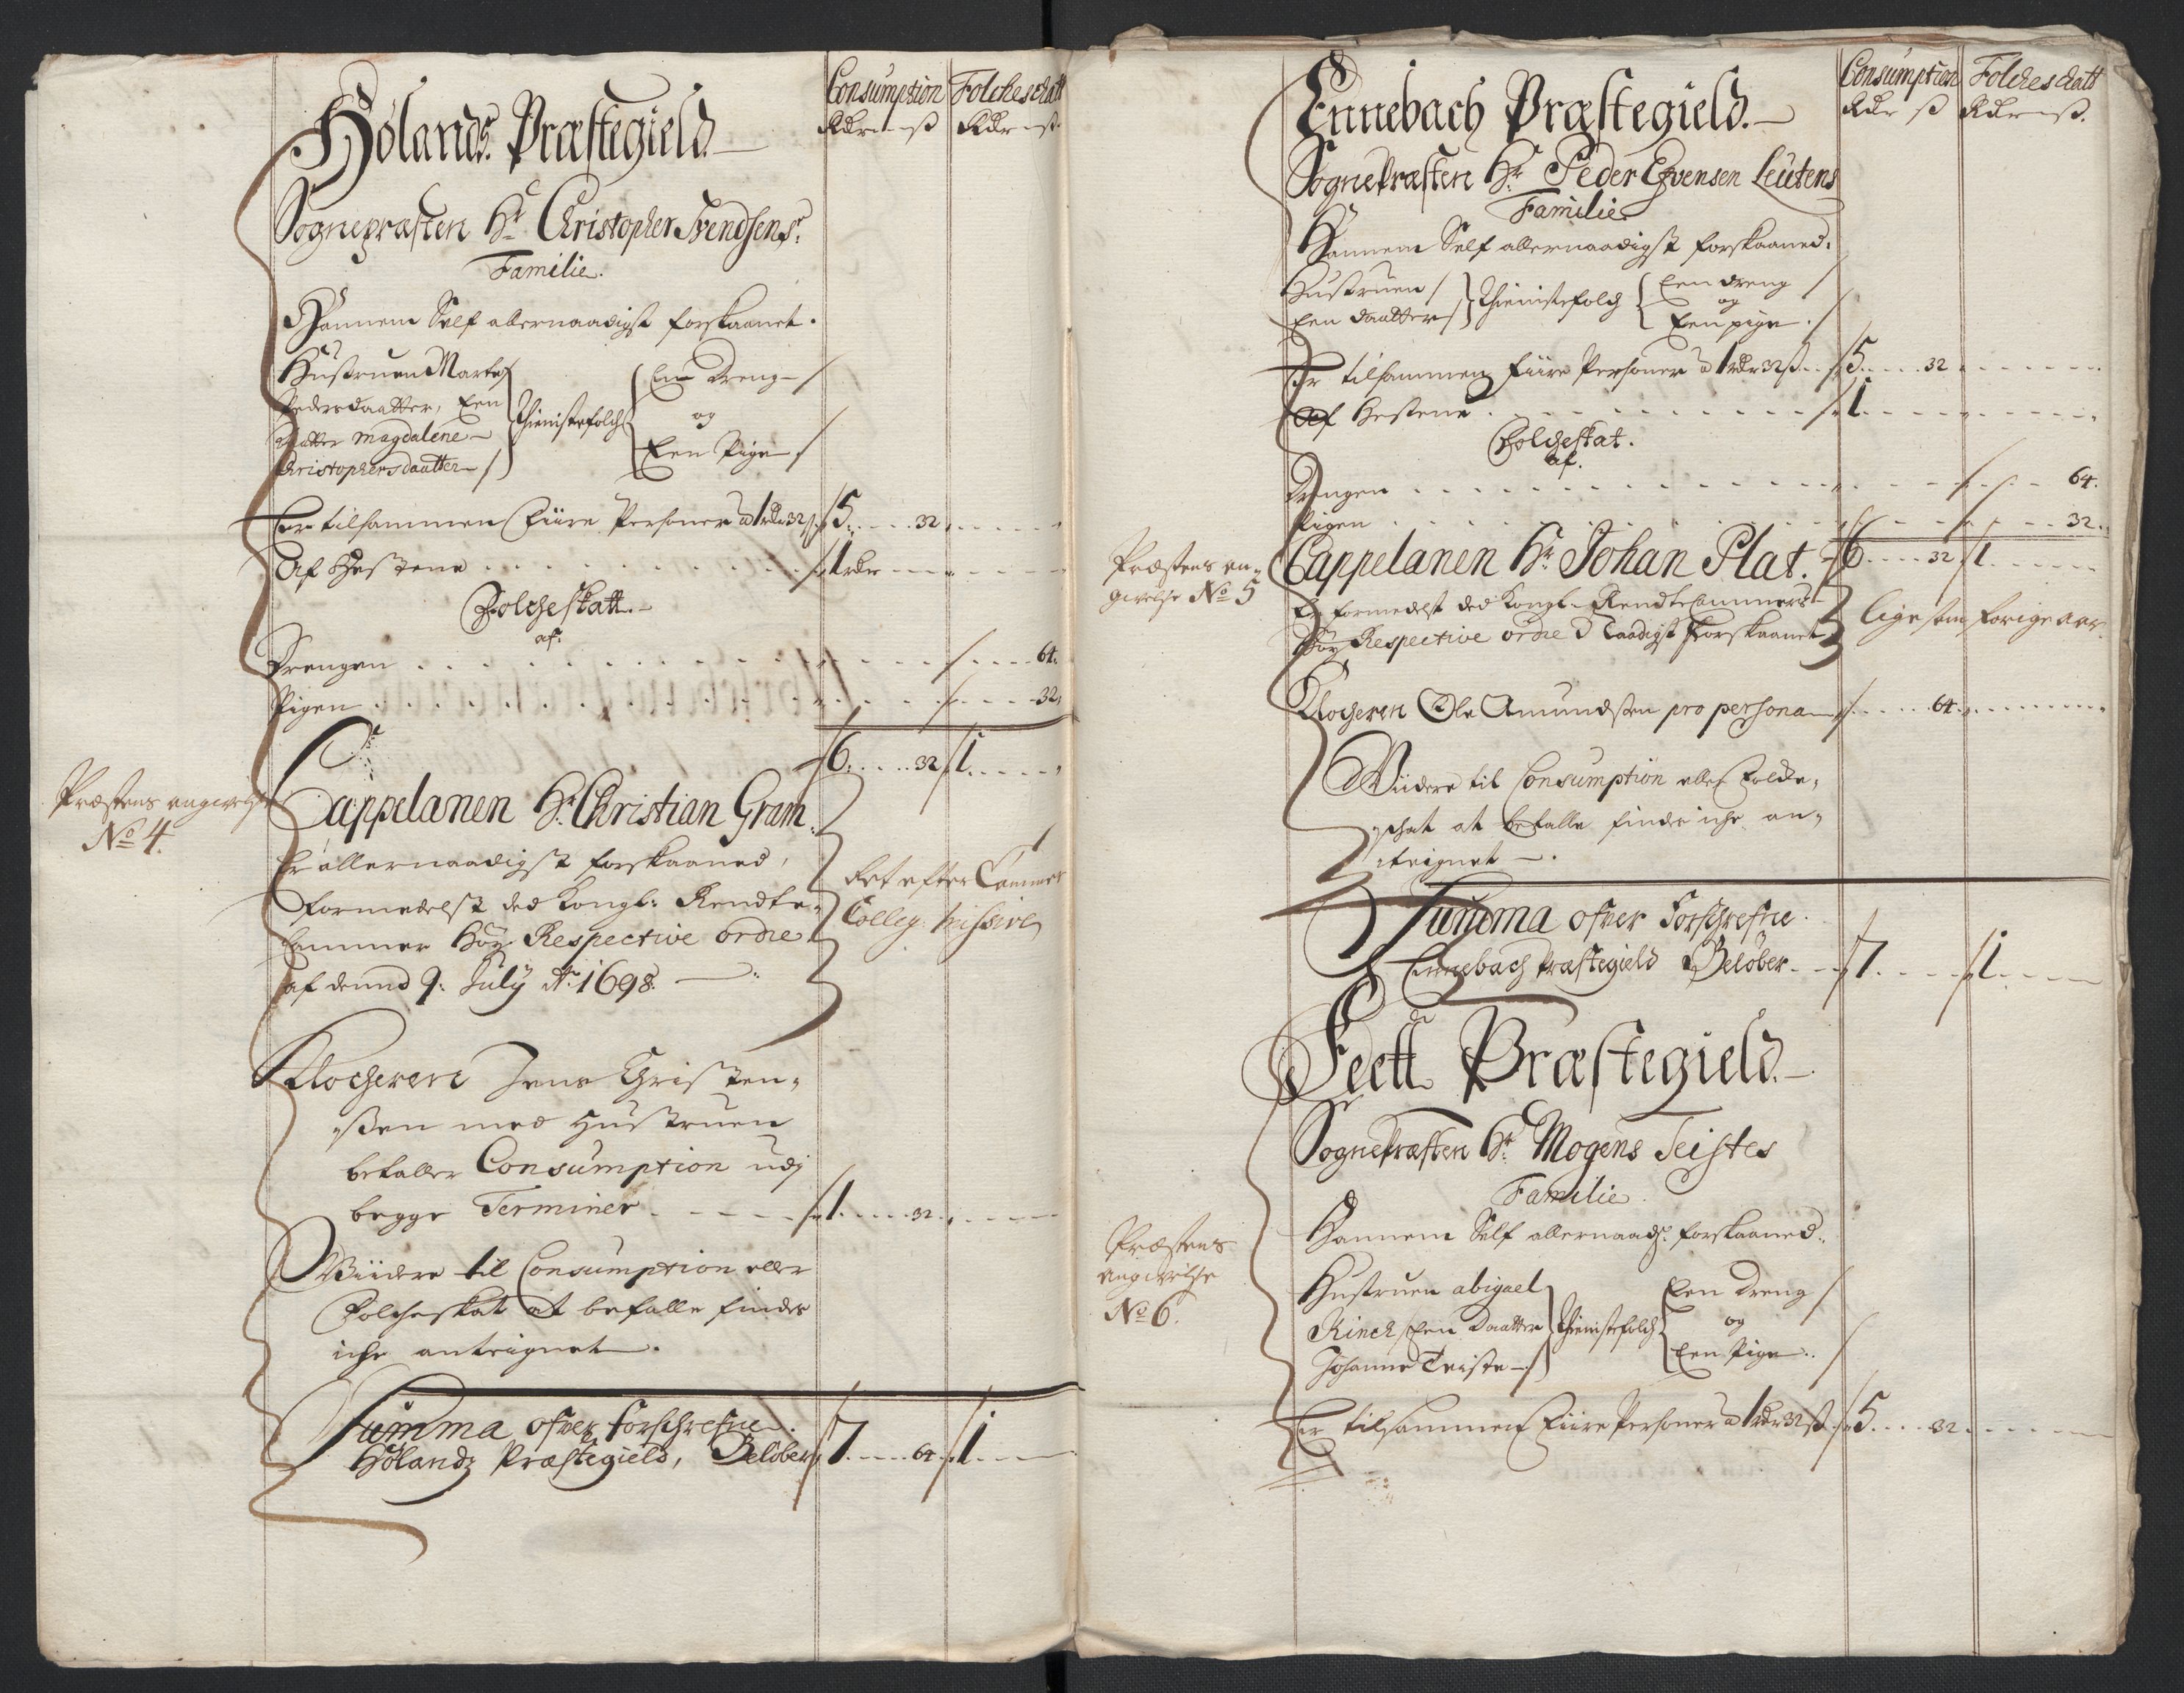 Consumption Folcheschatt
Rdr ß Rdr ß
Hølands Præstegield
Sognepræsten Hr Christopher Svendsens
Familie.
Hannem Self allernaadigst forskaanet.
Hustruen Marte
Pedersdaatter, Een
daatter Magdalene
Christophersdaatter
Thienistefolch
Een Dreng
og
Een Pige
Er tilsammen Fiire Personer à 1 rdr 32 ß 5 32
Af Hestene 1 rdr
Folcheskatt
af
Drengen 64.
Pigen 32
6 32 1
Præstens angivelse
No 4.
Cappelanen Hr Christian Gram
Er allernaadigst forskaaned,
formedelst ded Kongl: Rendte-
Cammer Høy Respective ordre
af dend 9: July Ao 1698.
Ret efter Cammer
Colleg: missive
Klocheren Jens Christen-
ßen med Hustruen
betaller Consumption udj
begge Terminer 1 32
Wiidere til Consumption eller
Folcheskat at befalle findes
iche anteignet.
Summa ofver forschrefne
Hølandz Præstegield, Beløber 7 64 1
Consumption Folcheschatt
Rdr ß Rdr ß
Ennebach Præstegield.
Sognepræsten Hr Peder Evensen Leutens
Familie
Hannem Self allernaadigst forskaaned.
Hustruen
Een daatter
Thienistefolch
Een dreng
og
Een pige.
Er tilsammen Fiire Personer à 1 rdr 32 ß 5 32
Af Hestene 1
Folcheskat.
af.
Drengen 64.
Pigen 32.
6 32 1
Præstens an-
givelse No 5
Cappelanen Hr Johan Plat.
Er formedelst ded Kongl. Rendte Cammers
Høy Respective ordre Naadigst forskaanet
lige som forige aar
Klocheren Ole Amundsen pro persona 64
Wiidere til Consumption eller Folche-
schat at befalle findes iche an-
teignet.
Summa ofver Forschrefne
Ennebach Præstegield Beløber 7 1
Feett Præstegield
Sognepræsten Hr Mogens Teistes
Familie.
Præstens
angivelse
No 6.
Hannem Self allernaadg. forskaaned.
Hustruen abigael
Rinch, Een Daatter
Johanne Teiste
Thienistefolch
Een Dreng
og
Een Pige
Er tilsammen Fiire Personer à 1 rdr 32 ß 5 32